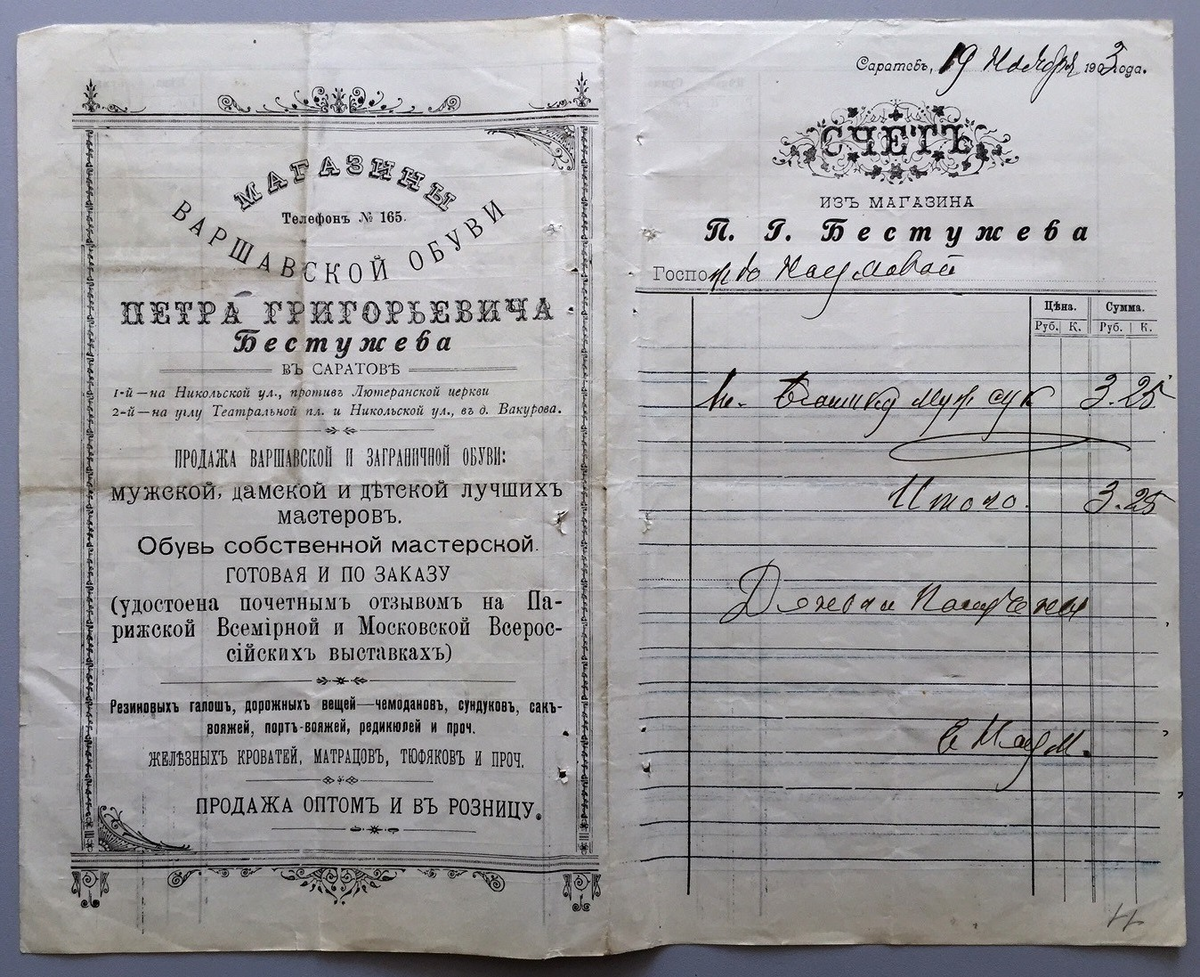 МАГАЗИНЫ
Телефонъ № 165.
ВАРШАВСКОЙ ОБУВИ
ПЕТРА ГРИГОРЬЕВИЧА
Бестужева
ВЪ САРАТОВѢ
1-й—на Никольской ул., противъ Лютеранской церкви
2-й—на углу Театральной пл. и Никольской ул., въ д. Вакурова.
ПРОДАЖА ВАРШАВСКОЙ И ЗАГРАНИЧНОЙ ОБУВИ:
МУЖСКОЙ, ДАМСКОЙ И ДѢТСКОЙ ЛУЧШИХЪ
МАСТЕРОВЪ.
Обувь собственной мастерской.
ГОТОВАЯ И ПО ЗАКАЗУ
(удостоена почетнымъ отзывомъ на Па-
рижской Всемірной и Московской Всерос-
сійскихъ выставкахъ)
Резиновыхъ галошъ, дорожныхъ вещей—чемодановъ, сундуковъ, сакъ-
вояжей, портъ-вояжей, редикюлей и проч.
ЖЕЛѢЗНЫХЪ КРОВАТЕЙ, МАТРАЦОВЪ, ТЮФЯКОВЪ И ПРОЧ.
ПРОДАЖА ОПТОМЪ И ВЪ РОЗНИЦУ.
Саратовъ, 19 Ноября 1903 года.
СЧЕТЪ
ИЗЪ МАГАЗИНА
П. Г. Бестужева
Госпо Наумовой
Цѣна. Сумма.
Руб. К. Руб. К.
муж 3.25
Итого. 3.25
Деньги получены